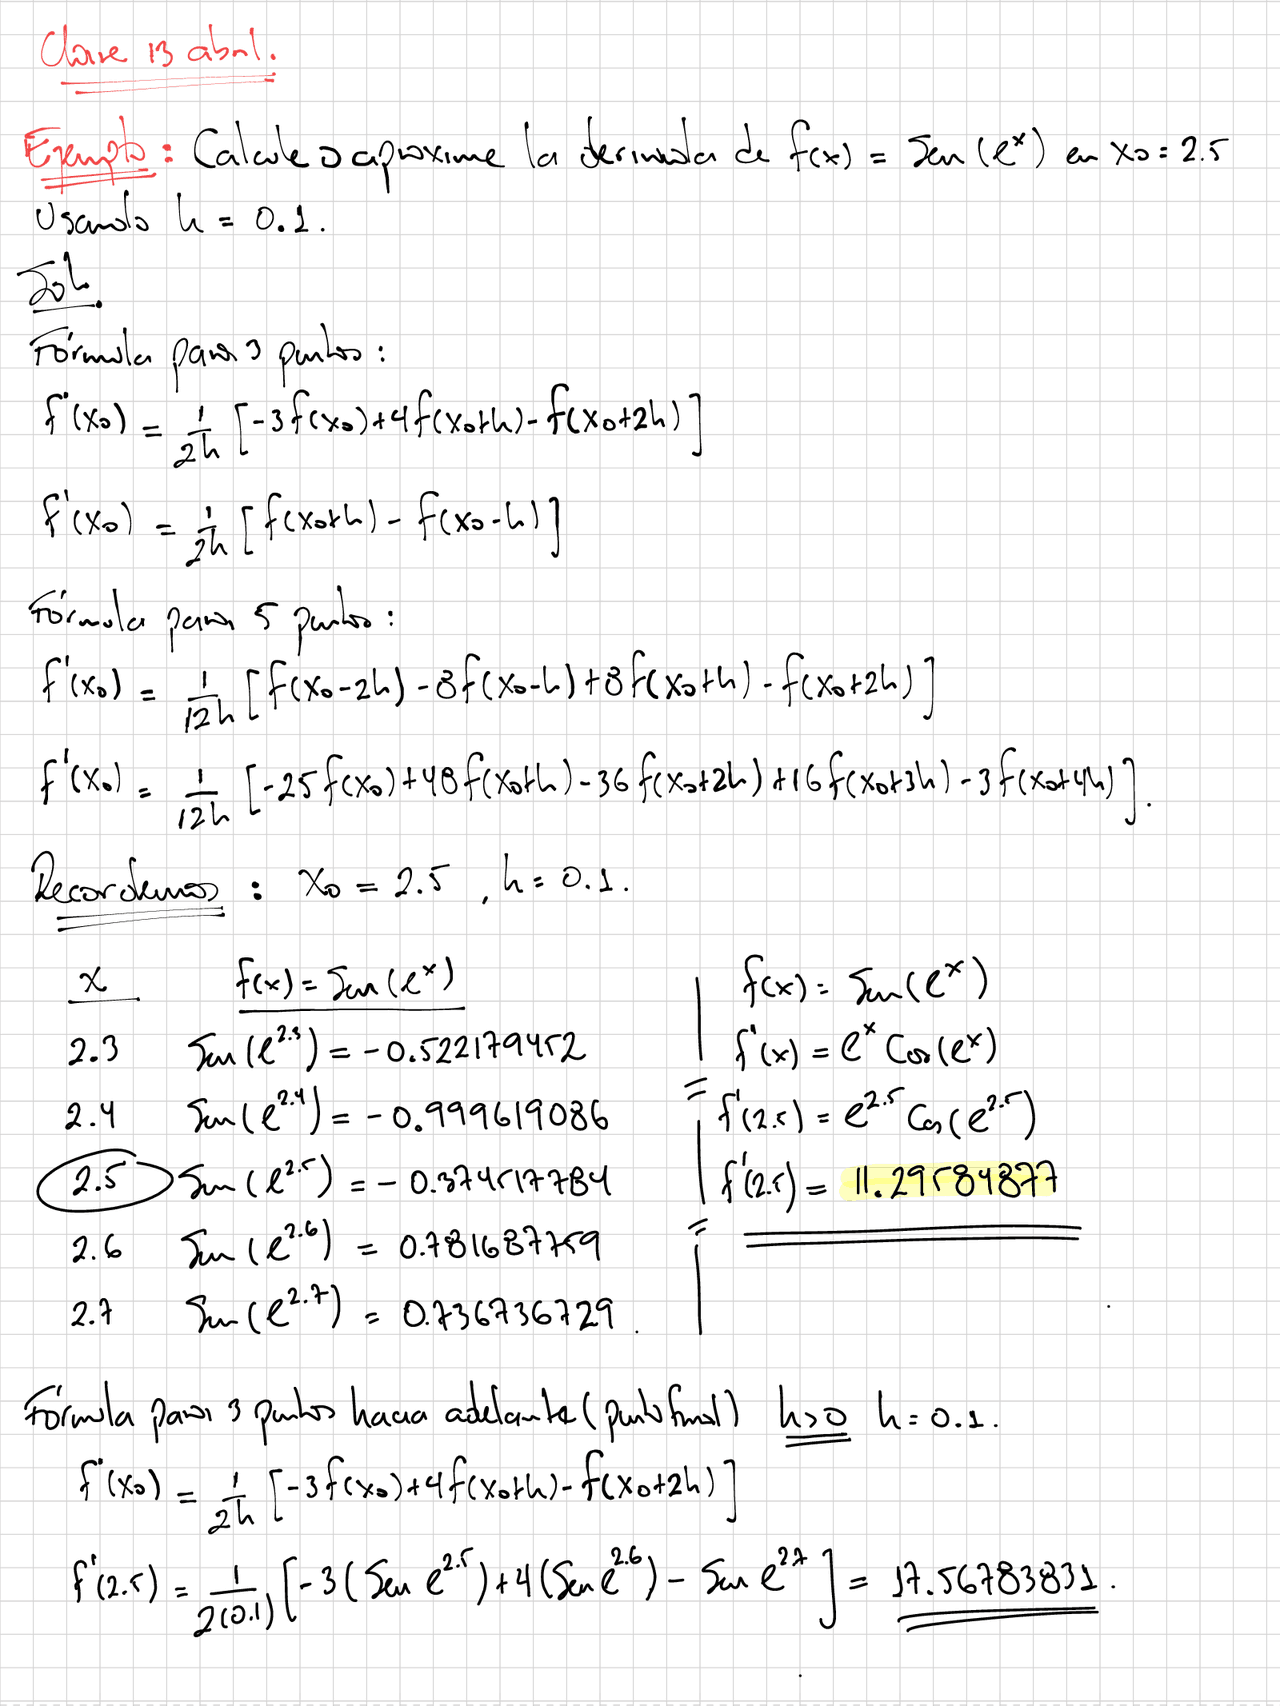 Clase 13 abril.
Ejemplo: Calcule o aproxime la derivada de f(x) = Sen(e^x) en x0 = 2.5
Usando h = 0.1.
Sol.
Fórmula para 3 puntos:
f'(x0) = 1/2h [-3f(x0)+4f(x0+h)-f(x0+2h)]
f'(x0) = 1/2h [f(x0+h) - f(x0-h)]
Fórmula para 5 puntos:
f'(x0) = 1/12h [f(x0-2h) -8f(x0-h)+8f(x0+h) - f(x0+2h)]
f'(x0) = 1/12h [-25f(x0)+48f(x0+h)-36f(x0+2h)+16f(x0+3h)-3f(x0+4h)].
Recordemos: x0 = 2.5, h = 0.1.
x f(x) = Sen(e^x)
2.3 Sen(e^2.3) = -0.522179452
2.4 Sen(e^2.4) = -0.999619086
2.5 Sen(e^2.5) = -0.374517784
2.6 Sen(e^2.6) = 0.781687759
2.7 Sen(e^2.7) = 0.736736729.
f(x) = Sen(e^x)
f'(x) = e^x Cos(e^x)
f'(2.5) = e^2.5 Cos(e^2.5)
f'(2.5) = 11.29584877
Fórmula para 3 puntos hacia adelante (punto final) h>0 h = 0.1.
f'(x0) = 1/2h [-3f(x0)+4f(x0+h)-f(x0+2h)]
f'(2.5) = 1/2(0.1) [-3(Sen e^2.5)+4(Sen e^2.6) - Sen e^2.7] = 17.56783831.